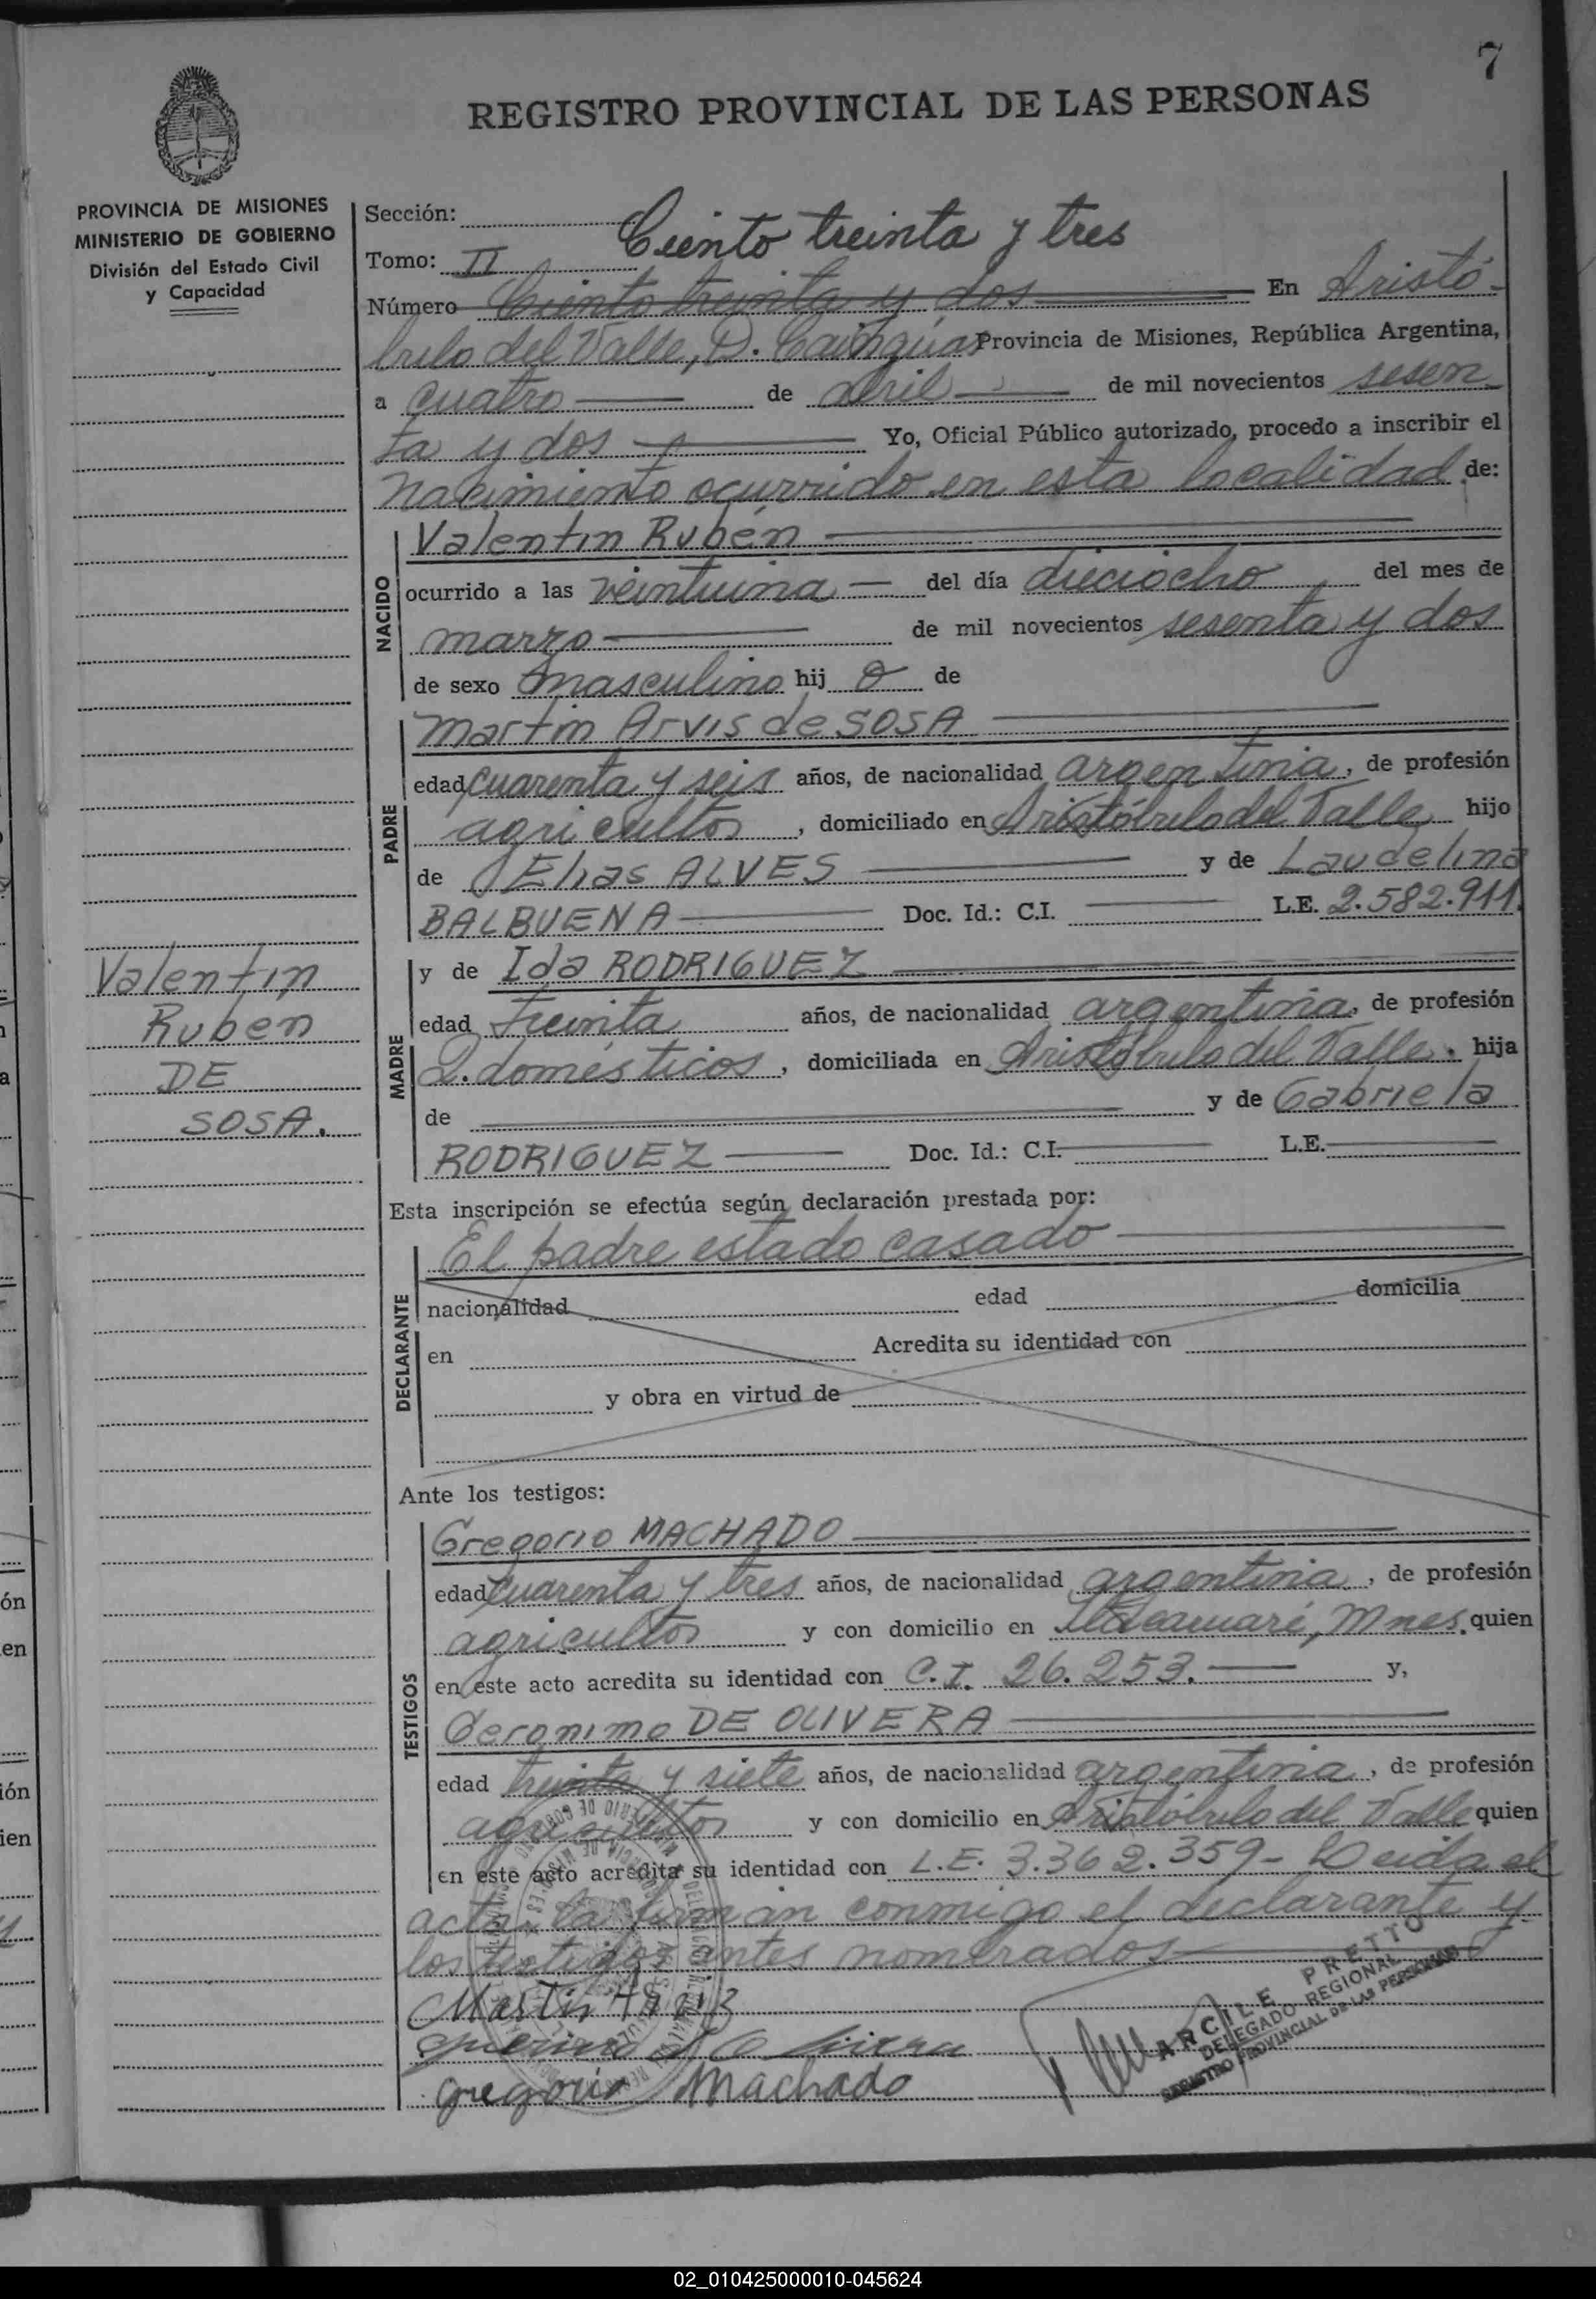 7
REGISTRO PROVINCIAL DE LAS PERSONAS
PROVINCIA DE MISIONES
MINISTERIO DE GOBIERNO
División del Estado Civil
y Capacidad
Sección:
Ciento treinta y tres
Tomo: II
Número Ciento treinta y dos En Aristó-
bulo del Valle, D. Cainguas Provincia de Misiones, República Argentina,
a cuatro de abril de mil novecientos sesen
ta y dos Yo, Oficial Público autorizado, procedo a inscribir el
nacimiento ocurrido en esta localidad de:
NACIDO
Valentin Rubén
ocurrido a las veintiuna del día dieciocho del mes de
marzo de mil novecientos sesenta y dos
de sexo masculino hij o de
PADRE
Martin Arvis de SOSA
edad cuarenta y seis años, de nacionalidad argentina, de profesión
agricultor, domiciliado en Aristóbulo del Valle hijo
de Elias ALVES y de Laudelina
BALBUENA Doc. Id.: C.I. L.E. 2.582.911.
MADRE
y de Ida RODRIGUEZ
edad treinta años, de nacionalidad argentina, de profesión
Q. domésticos, domiciliada en Aristóbulo del Valle. hija
de y de Gabriela
RODRIGUEZ Doc. Id.: C.I. L.E.
Valentin
Ruben
DE
SOSA.
Esta inscripción se efectúa según declaración prestada por:
DECLARANTE
El padre estado casado
nacionalidad edad domicilia
en Acredita su identidad con
y obra en virtud de
Ante los testigos:
TESTIGOS
Gregorio MACHADO
edad cuarenta y tres años, de nacionalidad argentina, de profesión
agricultor y con domicilio en Mnes. quien
en este acto acredita su identidad con C.I. 26.253. y,
Geronimo DE OLIVERA
edad treinta y siete años, de nacionalidad argentina, de profesión
agricultor y con domicilio en Aristóbulo del Valle quien
en este acto acredita su identidad con L.E. 3.362.359- Leida el
acta, la firman conmigo el declarante y
los testigos antes nombrados
Martin
Gregorio Machado
ARCILE PRETTO
DELEGADO REGIONAL
REGISTRO PROVINCIAL DE LAS PERSONAS
02_010425000010-045624